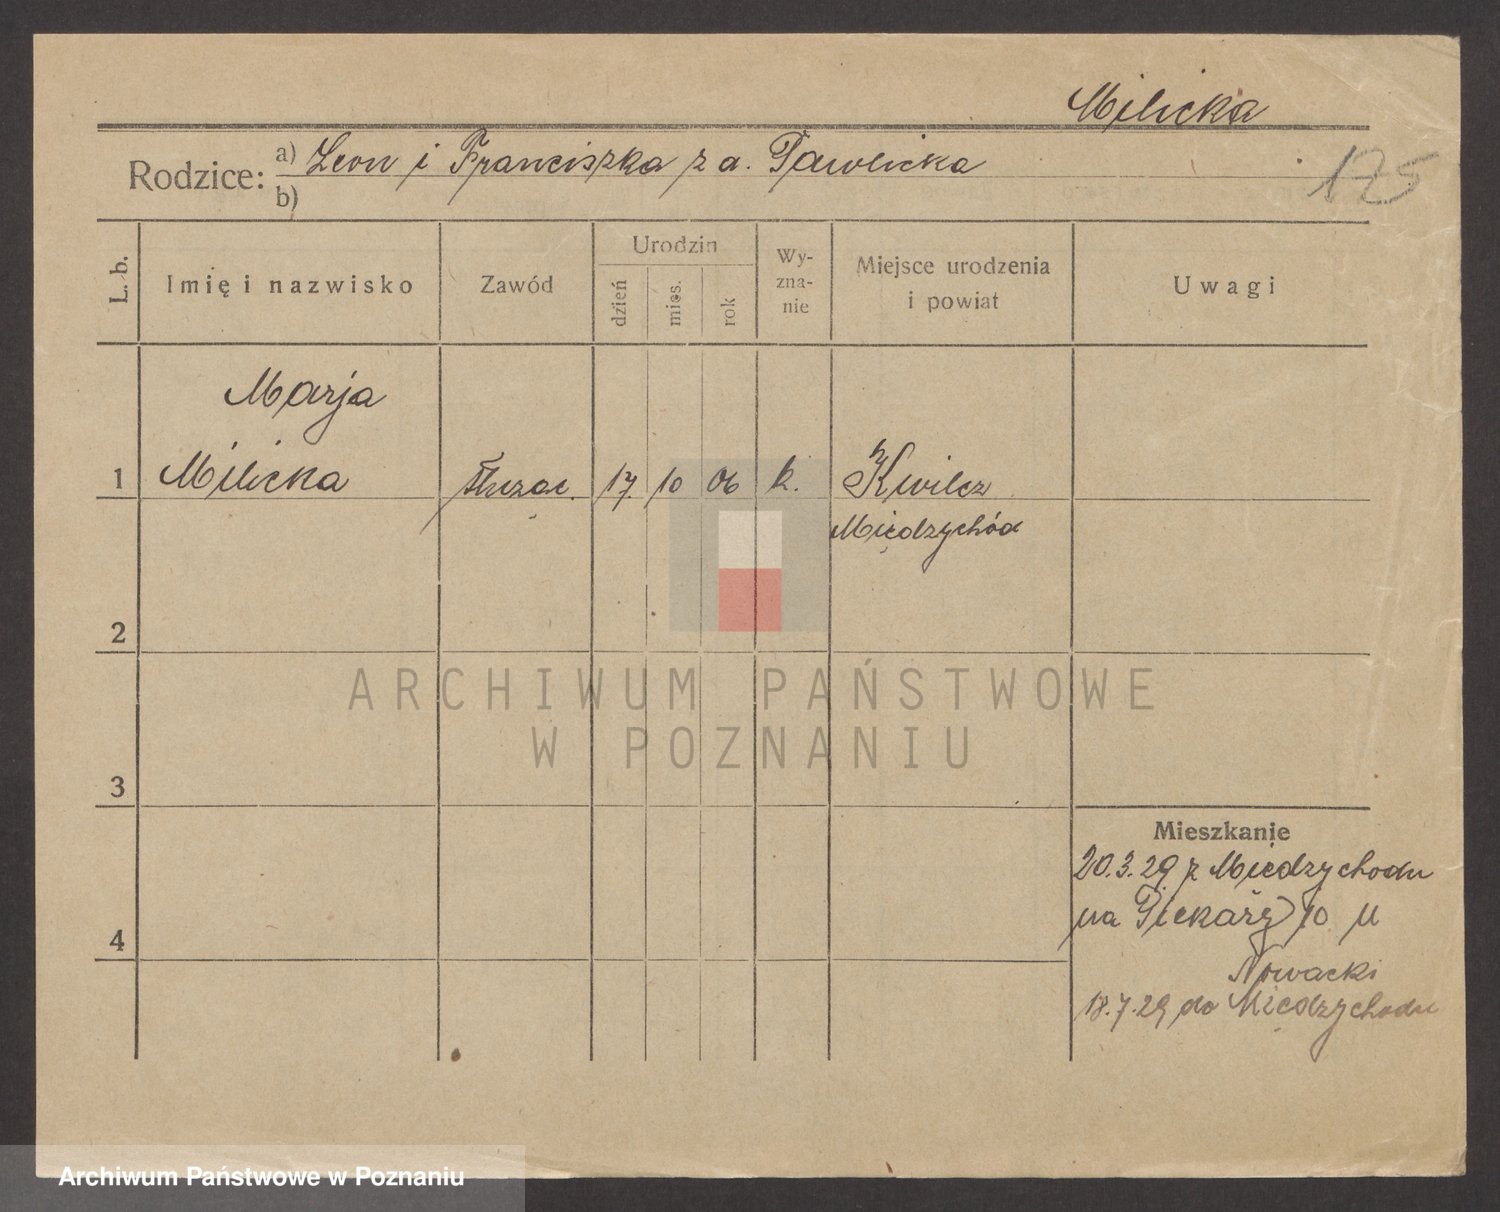 Milicka
Rodzice: a) Leon i Franciszka z d. Pawlicka
b)
175
L. b.
Imię i nazwisko
Zawód
Urodzin
dzień
mies.
rok
Wy-
zna-
nie
Miejsce urodzenia
i powiat
Uwagi
Marja
1 Milicka służąc. 17 10 06 k. Kwilcz
Międzychód
2
3
4
Mieszkanie
20.3.29 z Międzychodu
na Piekary 10 u
Nowacki
18.7.29 do Międzychodu
ARCHIWUM PAŃSTWOWE
W POZNANIU
Archiwum Państwowe w Poznaniu